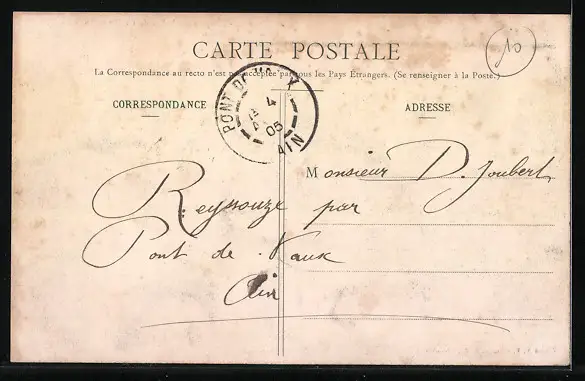 CARTE POSTALE
La Correspondance au recto n'est pas acceptée par tous les Pays Étrangers. (Se renseigner à la Poste.)
10
PONT DE VAUX
4
05
AIN
CORRESPONDANCE
ADRESSE
Monsieur D. Joubert
Reyssouze par
Pont de Vaux
Ain